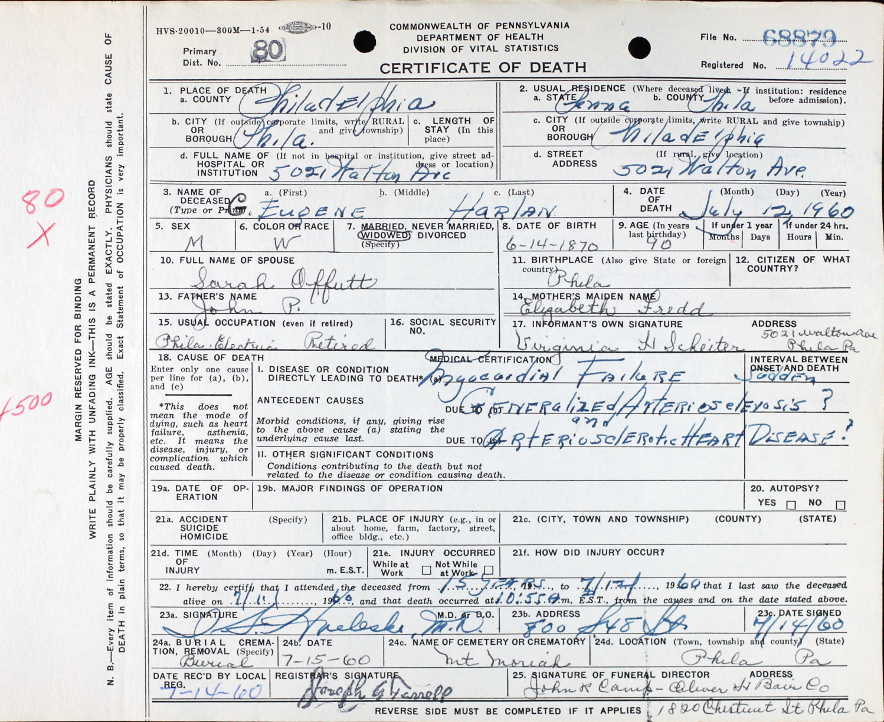 HVS-20010—300M—1-54 -10
COMMONWEALTH OF PENNSYLVANIA
DEPARTMENT OF HEALTH
DIVISION OF VITAL STATISTICS
CERTIFICATE OF DEATH
Primary Dist. No. 80
File No. 68879
Registered No. 14022
1. PLACE OF DEATH
a. COUNTY Philadelphia
2. USUAL RESIDENCE (Where deceased lived. If institution: residence before admission).
a. STATE Penna b. COUNTY Phila
b. CITY (If outside corporate limits, write RURAL and give township) OR BOROUGH Phila.
c. LENGTH OF STAY (In this place)
c. CITY (If outside corporate limits, write RURAL and give township) OR BOROUGH Philadelphia
d. FULL NAME OF (If not in hospital or institution, give street address or location) HOSPITAL OR INSTITUTION 5021 Walton Ave
d. STREET ADDRESS (If rural, give location) 5021 Walton Ave.
3. NAME OF DECEASED (Type or Print) a. (First) b. (Middle) c. (Last)
G. EUGENE HARLAN
4. DATE OF DEATH (Month) (Day) (Year)
July 12, 1960
5. SEX M
6. COLOR OR RACE W
7. MARRIED, NEVER MARRIED, WIDOWED, DIVORCED (Specify)
8. DATE OF BIRTH 6-14-1870
9. AGE (In years last birthday) 90
If under 1 year Months Days
If under 24 hrs. Hours Min.
10. FULL NAME OF SPOUSE
Sarah Offutt
11. BIRTHPLACE (Also give State or foreign country)
Phila
12. CITIZEN OF WHAT COUNTRY?
13. FATHER'S NAME
John P.
14. MOTHER'S MAIDEN NAME
Elizabeth Fredd
15. USUAL OCCUPATION (even if retired)
Phila. Electric Retired
16. SOCIAL SECURITY NO.
17. INFORMANT'S OWN SIGNATURE ADDRESS
Virginia H Scheiter 5021 Walton Ave Phila Pa
18. CAUSE OF DEATH
Enter only one cause per line for (a), (b), and (c)
*This does not mean the mode of dying, such as heart failure, asthenia, etc. It means the disease, injury, or complication which caused death.
MEDICAL CERTIFICATION
INTERVAL BETWEEN ONSET AND DEATH
I. DISEASE OR CONDITION DIRECTLY LEADING TO DEATH* (a) Myocardial FAILURE Sudden
ANTECEDENT CAUSES
DUE TO (b) GENERALIZED Arteriosclerosis ?
and
Morbid conditions, if any, giving rise to the above cause (a) stating the underlying cause last.
DUE TO (c) ARTERIOSCLEROTIC HEART DISEASE ?
II. OTHER SIGNIFICANT CONDITIONS
Conditions contributing to the death but not related to the disease or condition causing death.
19a. DATE OF OPERATION
19b. MAJOR FINDINGS OF OPERATION
20. AUTOPSY?
YES NO
21a. ACCIDENT SUICIDE HOMICIDE (Specify)
21b. PLACE OF INJURY (e.g., in or about home, farm, factory, street, office bldg., etc.)
21c. (CITY, TOWN AND TOWNSHIP) (COUNTY) (STATE)
21d. TIME OF INJURY (Month) (Day) (Year) (Hour) m. E.S.T.
21e. INJURY OCCURRED While at Work Not While at Work
21f. HOW DID INJURY OCCUR?
22. I hereby certify that I attended the deceased from 15 YEARS, 19, to 7/12, 1960 that I last saw the deceased
alive on 7/11, 1960, and that death occurred at 10:55 m. E.S.T., from the causes and on the date stated above.
23a. SIGNATURE M.D. or D.O.
23b. ADDRESS 800 S 48 St
23c. DATE SIGNED 7/14/60
24a. BURIAL, CREMATION, REMOVAL (Specify) Burial
24b. DATE 7-15-60
24c. NAME OF CEMETERY OR CREMATORY Mt Moriah
24d. LOCATION (Town, township and county) (State) Phila Pa
DATE REC'D BY LOCAL REG. 7-14-60
REGISTRAR'S SIGNATURE Joseph G Farrell
25. SIGNATURE OF FUNERAL DIRECTOR ADDRESS
John R Camp - Oliver H Bair Co
1820 Chestnut St Phila Pa
REVERSE SIDE MUST BE COMPLETED IF IT APPLIES
MARGIN RESERVED FOR BINDING
WRITE PLAINLY WITH UNFADING INK—THIS IS A PERMANENT RECORD
N. B.—Every item of information should be carefully supplied. AGE should be stated EXACTLY. PHYSICIANS should state CAUSE OF
DEATH in plain terms, so that it may be properly classified. Exact Statement of OCCUPATION is very important.
80
X
4500